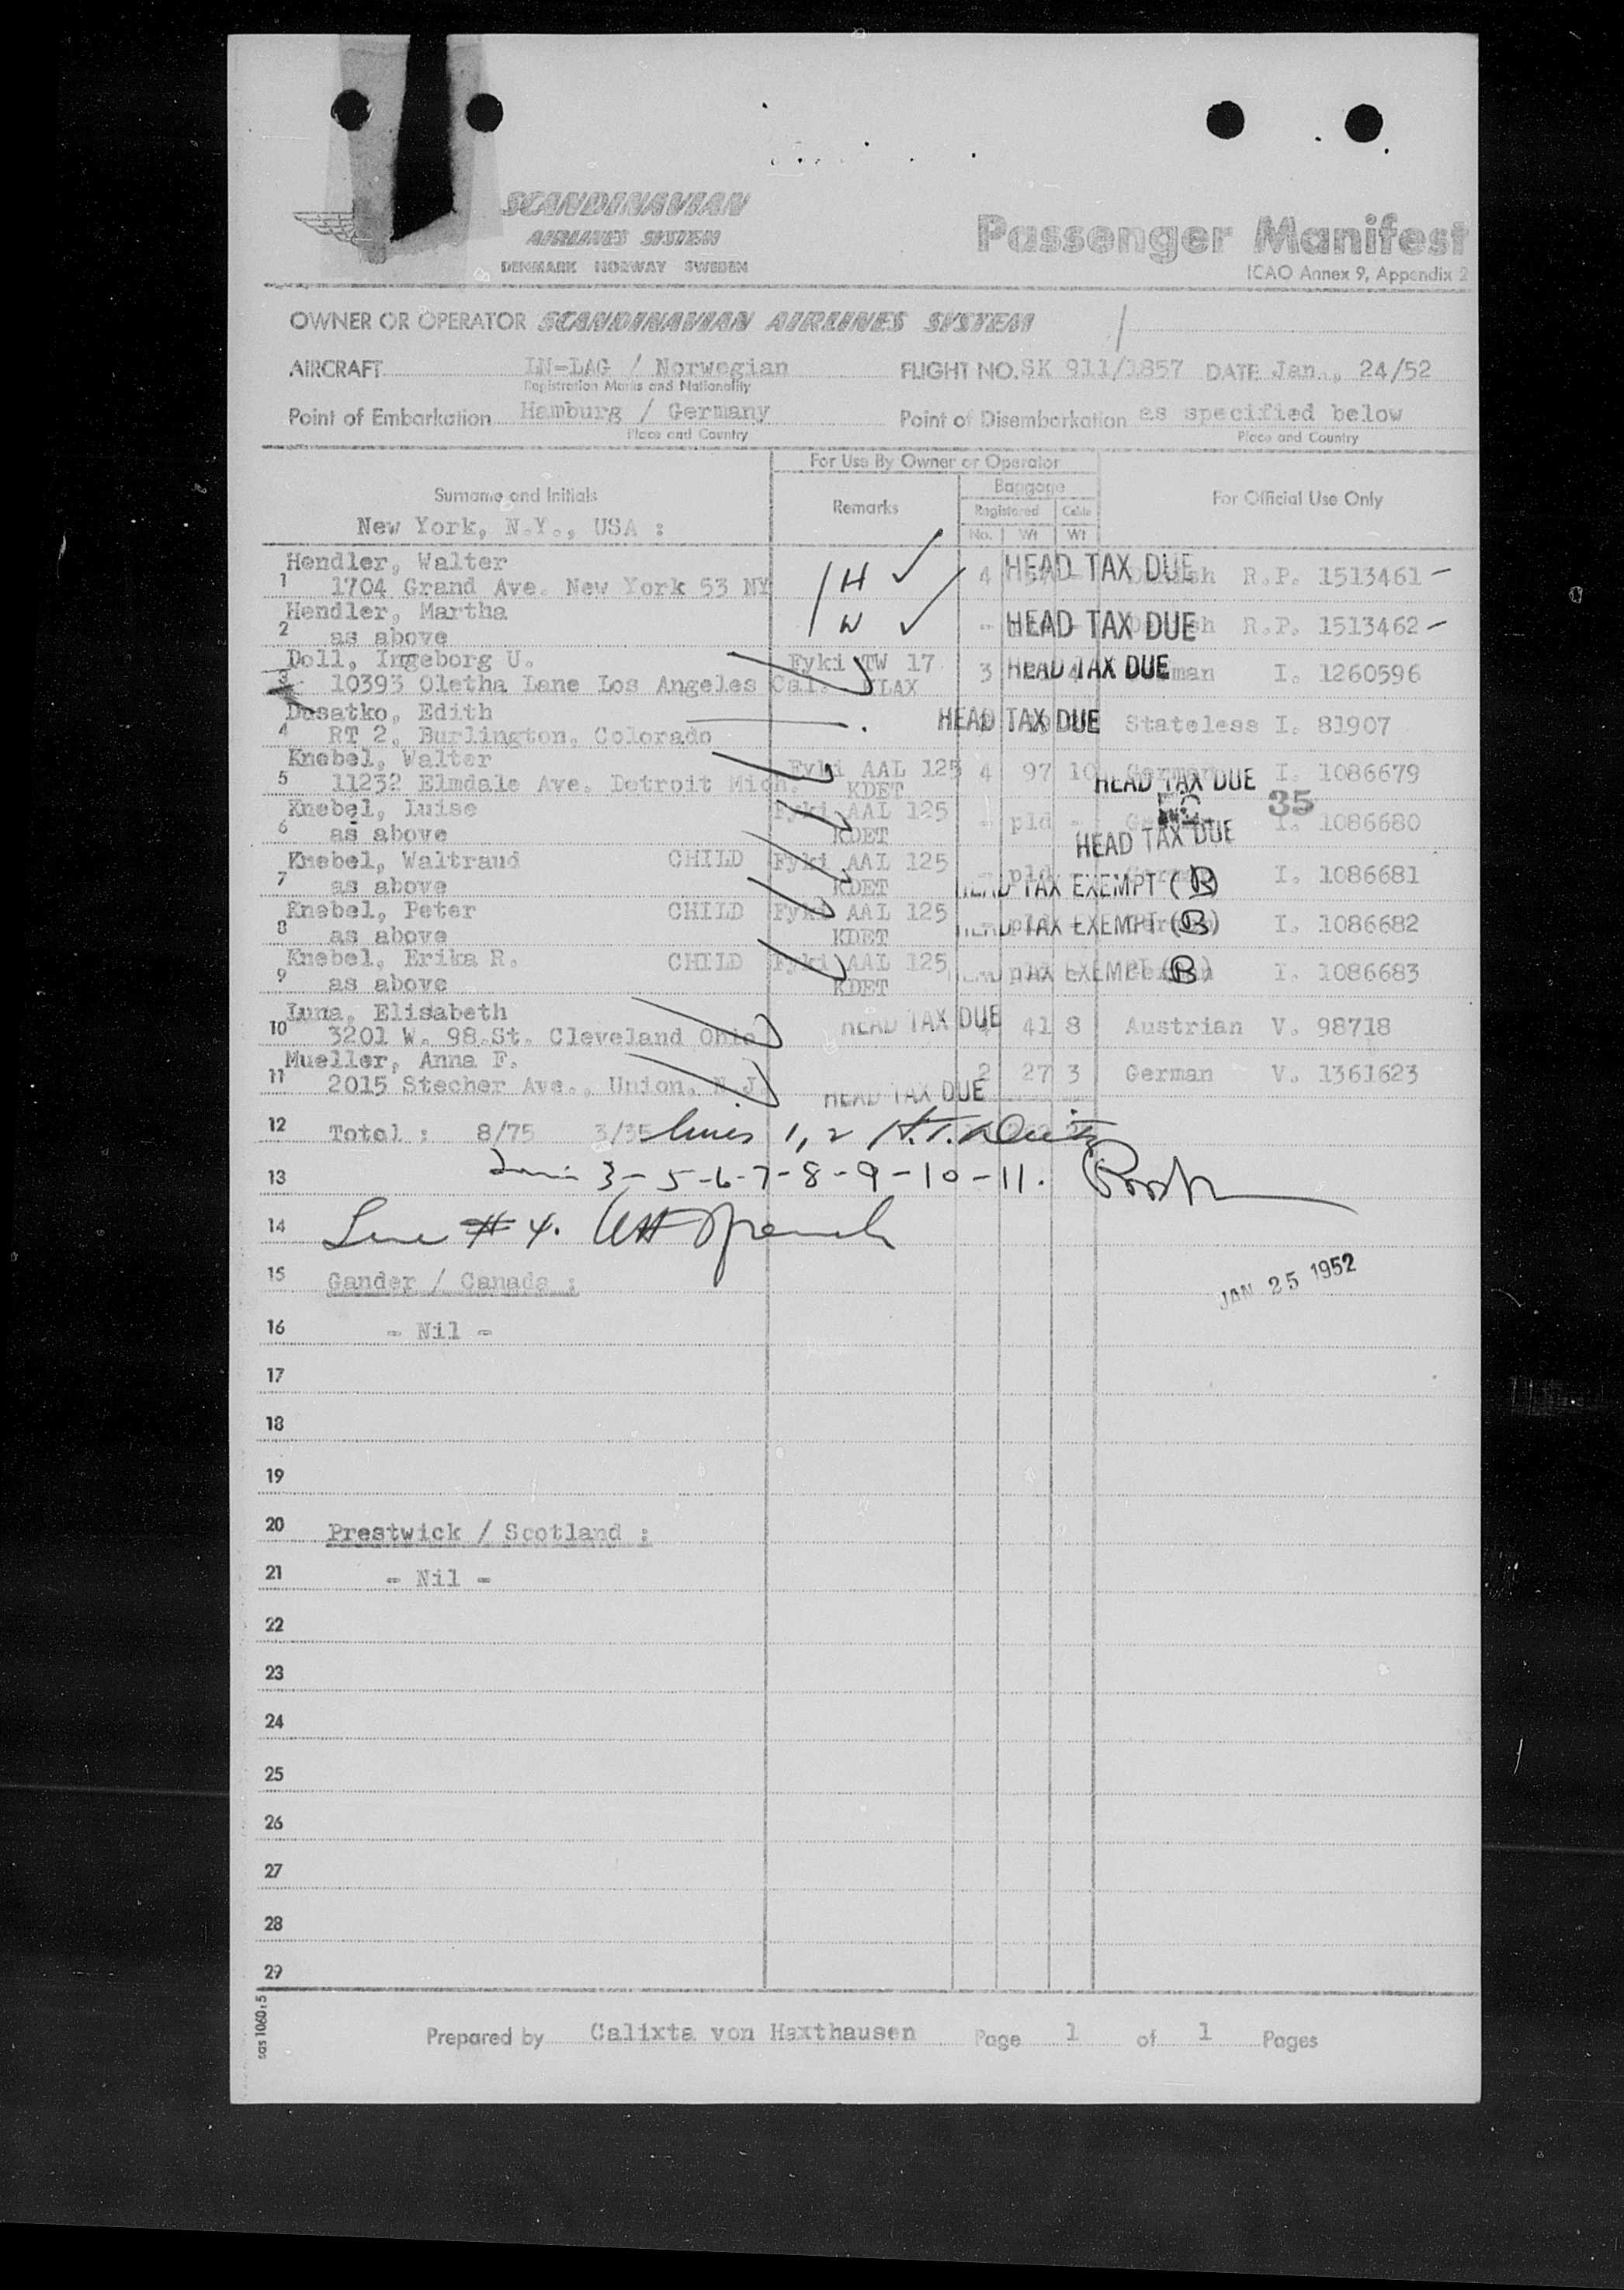 SCANDINAVIAN
AIRLINES SYSTEM
DENMARK NORWAY SWEDEN
Passenger Manifest
ICAO Annex 9, Appendix 2
OWNER OR OPERATOR SCANDINAVIAN AIRLINES SYSTEM
AIRCRAFT LN-LAG / Norwegian FLIGHT NO. SK 911/1857 DATE Jan., 24/52
Registration Marks and Nationality
Point of Embarkation Hamburg / Germany Point of Disembarkation as specified below
Place and Country Place and Country
For Use By Owner or Operator
Surname and Initials Remarks Baggage For Official Use Only
Registered Cabin
No. Wt Wt
New York, N.Y., USA :
Hendler, Walter H 4 HEAD TAX DUE R.P. 1513461 -
1 1704 Grand Ave. New York 53 NY
Hendler, Martha W - HEAD TAX DUE R.P. 1513462 -
2 as above
Doll, Ingeborg U. Fyki TW 17 3 4 HEAD TAX DUE German I. 1260596
3 10393 Oletha Lane Los Angeles Cal. KLAX
Dusatko, Edith HEAD TAX DUE Stateless I. 81907
4 RT 2, Burlington, Colorado
Knebel, Walter Fyki AAL 125 4 97 10 German I. 1086679
5 11232 Elmdale Ave. Detroit Mich. KDET HEAD TAX DUE
35
Knebel, Luise Fyki AAL 125 - pld - German I. 1086680
6 as above KDET HEAD TAX DUE
Knebel, Waltraud CHILD Fyki AAL 125 - pld - German I. 1086681
7 as above KDET HEAD TAX EXEMPT (B)
Knebel, Peter CHILD Fyki AAL 125 - pld - German I. 1086682
8 as above KDET HEAD TAX EXEMPT (B)
Knebel, Erika R. CHILD Fyki AAL 125 - pld - German I. 1086683
9 as above KDET HEAD TAX EXEMPT (B)
Luna, Elisabeth HEAD TAX DUE 41 8 Austrian V. 98718
10 3201 W. 98.St. Cleveland Ohio
Mueller, Anna F. 2 27 3 German V. 1361623
11 2015 Stecher Ave., Union, N.J. HEAD TAX DUE
12 Total : 8/75 3/35 Lines 1, 2 H.T.
13 3-5-6-7-8-9-10-11.
14 Line #4.
15 Gander / Canada :
JAN 25 1952
16 - Nil -
17
18
19
20 Prestwick / Scotland :
21 - Nil -
22
23
24
25
26
27
28
29
sas 1060:5
Prepared by Calixta von Haxthausen Page 1 of 1 Pages